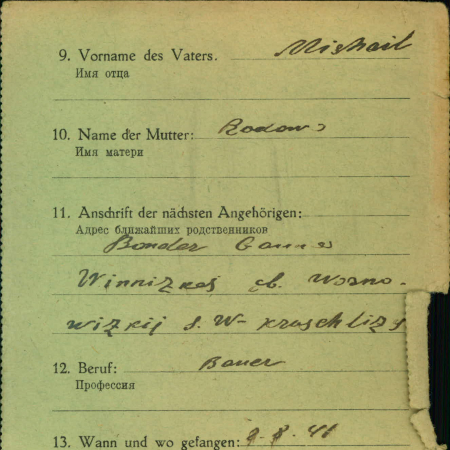 9. Vorname des Vaters. Mishail
Имя отца
10. Name der Mutter: Rodows
Имя матери
11. Anschrift der nächsten Angehörigen:
Адрес ближайших родственников
Bonder
Winnizkaj
wizkij s. W-kroschlizs
12. Beruf: Bauer
Профессия
13. Wann und wo gefangen: 9.8.41